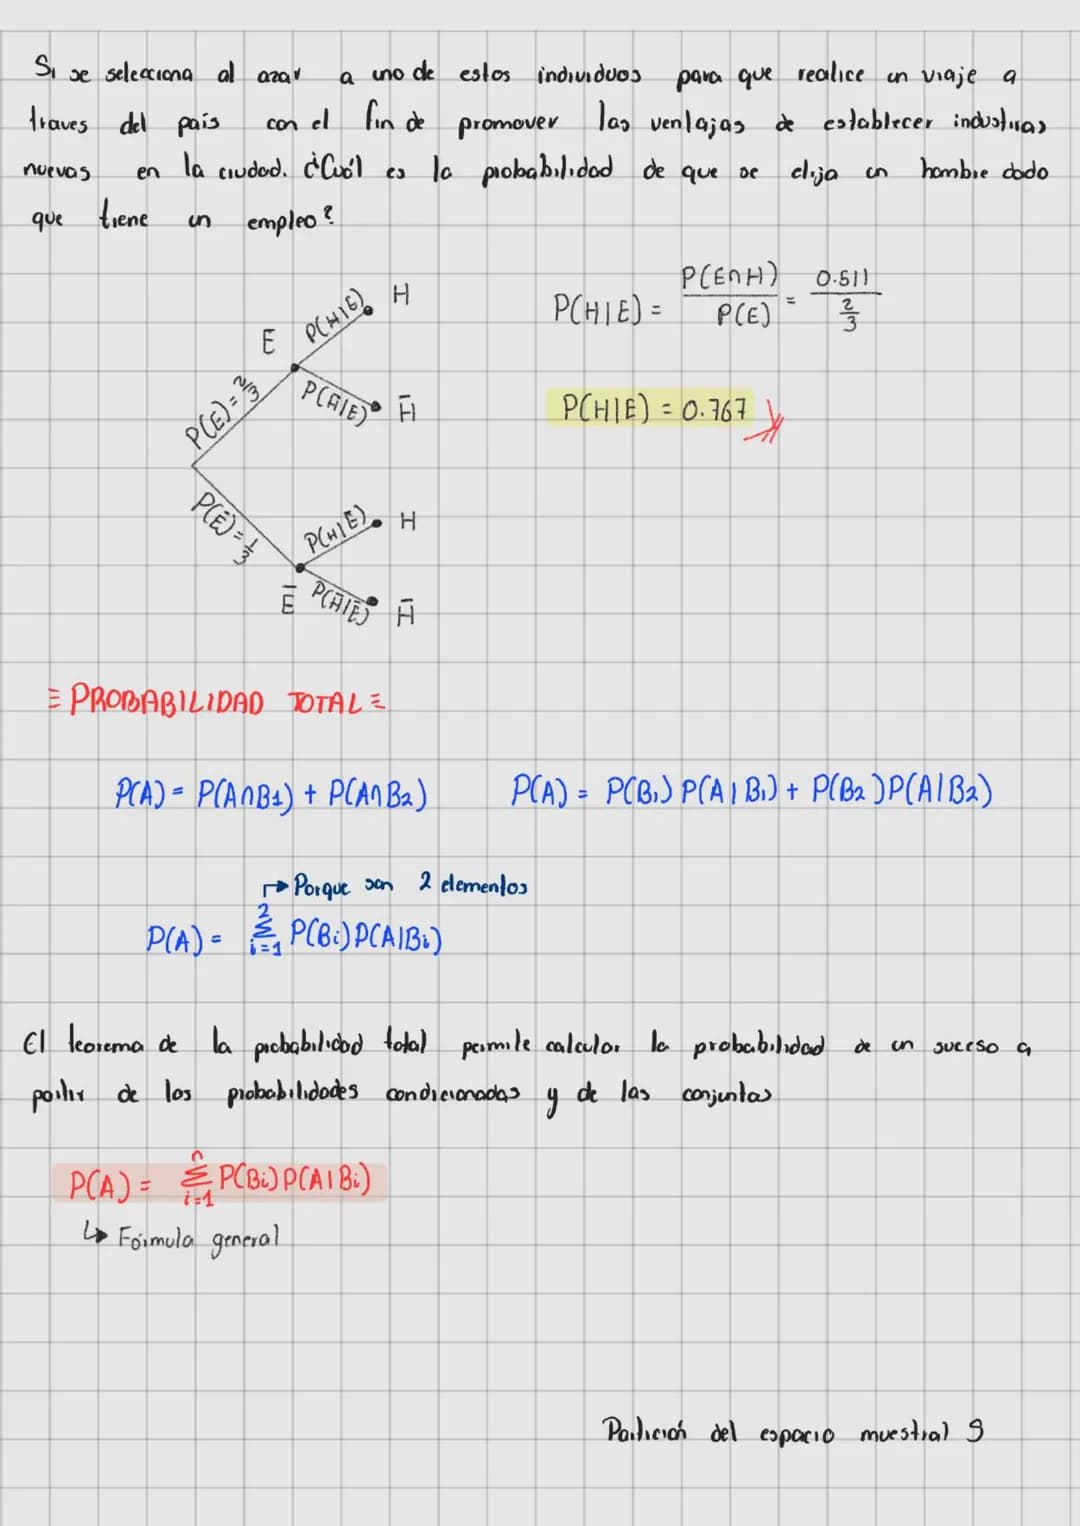 Si se selecciona al azar a uno de estos individuos para que realice un viaje a
traves del país con el fin de promover las ventajas de establecer industrias
nuevas en la ciudad. ¿Cuál es la probabilidad de que se elija un hombre dado
que tiene un empleo?
P(E) = 2/3
E
P(H|E)
H
P(H̄|E)
H̄
P(Ē) = 1/3
Ē
P(H|Ē)
H
P(H̄|Ē)
H̄
P(H|E) = P(E∩H) / P(E) = 0.511 / (2/3)
P(H|E) = 0.767
PROBABILIDAD TOTAL
P(A) = P(A∩B1) + P(A∩B2)
P(A) = P(B1) P(A|B1) + P(B2) P(A|B2)
Porque son 2 elementos
P(A) = 2 Σ i=1 P(Bi) P(A|Bi)
El teorema de la probabilidad total permite calcular la probabilidad de un suceso a
partir de los probabilidades condicionadas y de las conjuntas
P(A) = n Σ i=1 P(Bi) P(A|Bi)
↳ Fórmula general
Partición del espacio muestral S